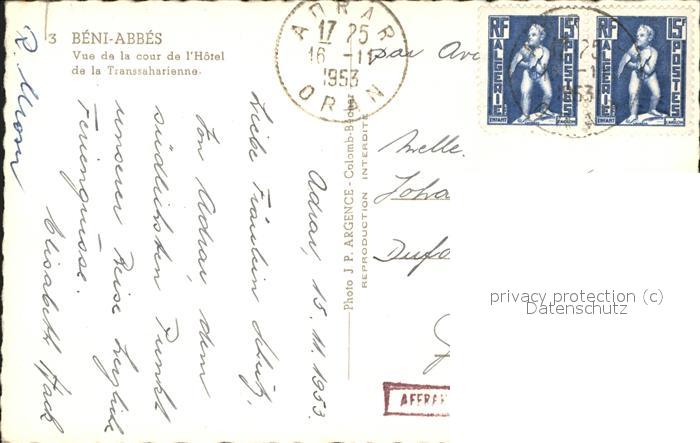 3 BÉNI-ABBÉS
Vue de la cour de l'Hôtel
de la Transsaharienne.
Adrar, 15.11.1953
Liebe Fräulein
Von Adrar, dem
südlichsten Punkt
unserer Reise herzliche
Feriengrüsse.
Elisabeth
R.
Photo J. P. ARGENCE - Colomb-Béchar
REPRODUCTION INTERDITE
ADRAR
17 25
16 -11
1953
ORAN
par
RF 15F
ALGERIE POSTES
ENFANT
RF 15F
ALGERIE POSTES
ENFANT
25
1953
Melle.
Joha
Dufo
AFFRA
privacy protection (c)
Datenschutz